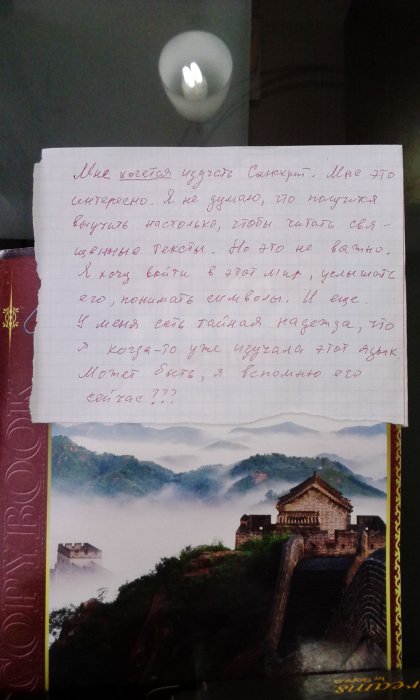 Мне хочется изучать Санскрит. Мне это
интересно. Я не думаю, что получится
выучить настолько, чтобы читать свя-
щенные тексты. Но это не важно.
Я хочу войти в этот мир, услышать
его, понимать символы. И еще.
У меня есть тайная надежда, что
я когда-то уже изучала этот язык
Может быть, я вспомню его
сейчас???
COPYBOOK
reams